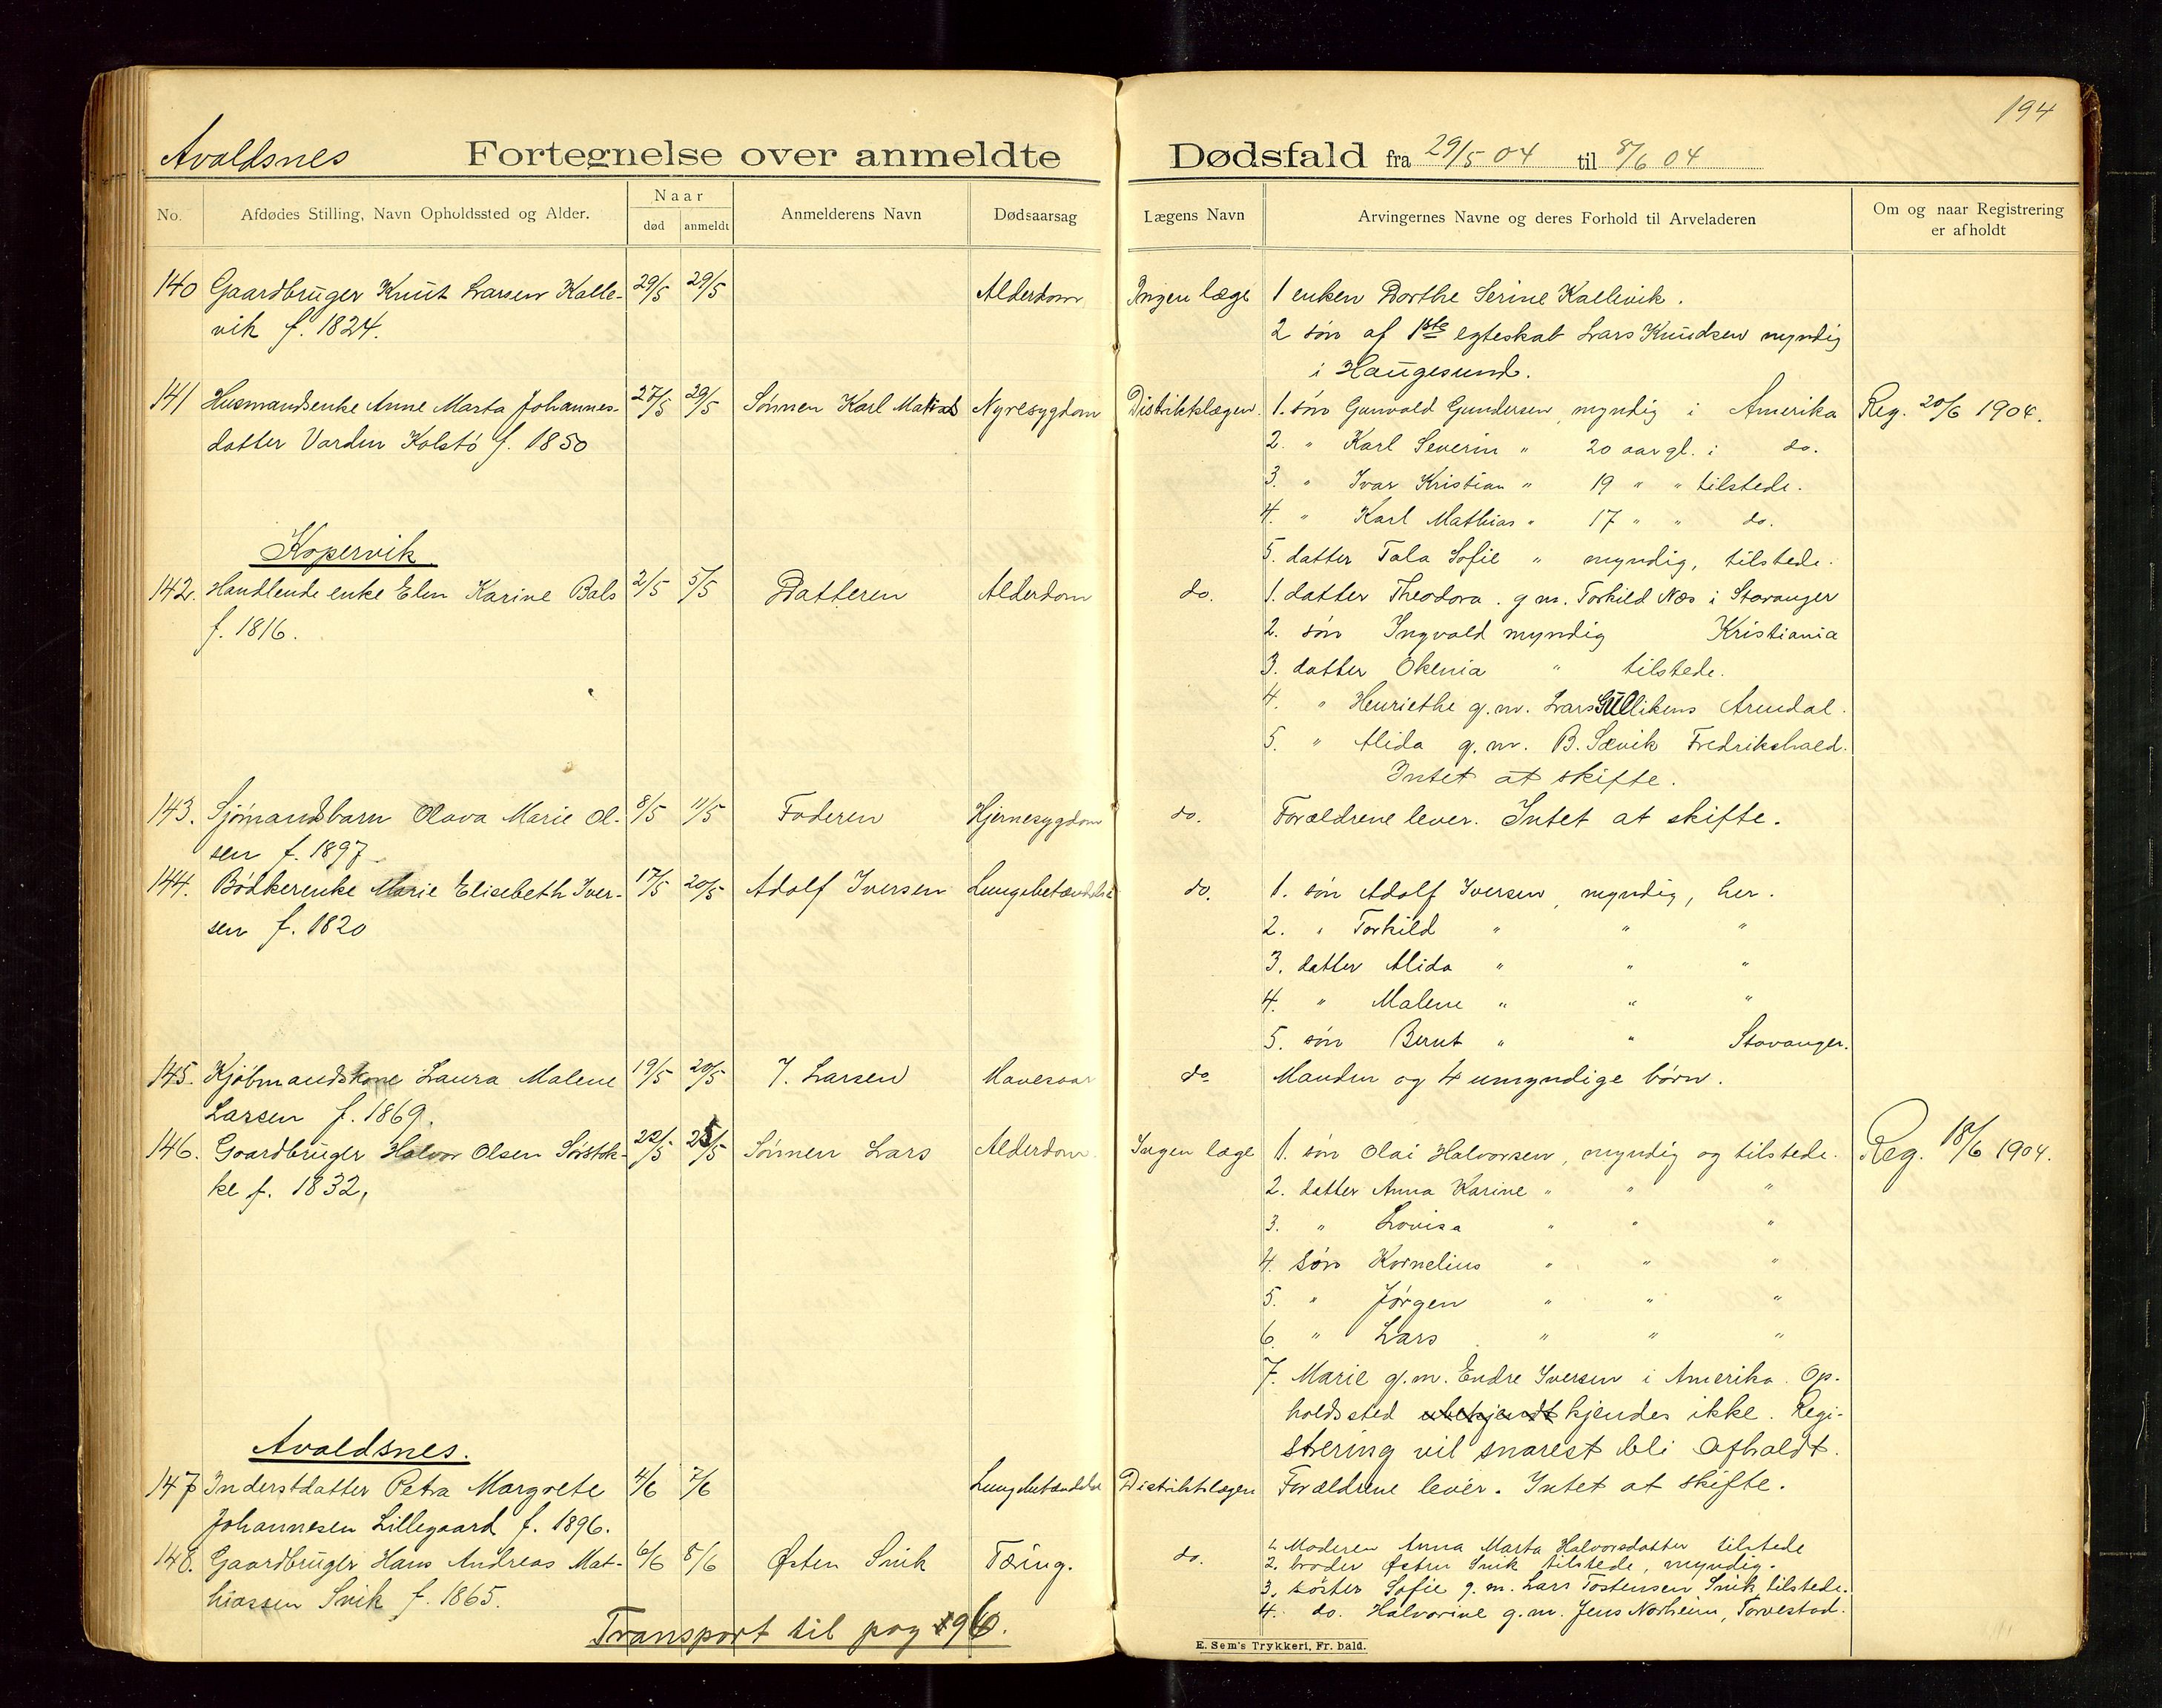 194
Avaldsnes Fortegnelse over anmeldte Dødsfald fra 29/5 04 til 8/6 04
No. Afdødes Stilling, Navn Opholdssted og Alder. Naar død anmeldt Anmelderens Navn Dødsaarsag Lægens Navn Arvingernes Navne og deres Forhold til Arveladeren Om og naar Registrering er afholdt
140 Gaardbruger Knut Larsen Kalle- 29/5 29/5 Alderdom Ingen læge 1 enken Dorthe Serine Kallevik.
vik f. 1824. 2 søn af 1ste egteskab Lars Knudsen myndig
i Haugesund.
141 Husmandsenke Anne Marta Johannes- 27/5 29/5 Sønnen Karl Matias Nyresygdom Distriktslægen. 1. søn Gunvald Gundersen, myndig i Amerika Reg. 20/6 1904.
datter Varden Kolstø f. 1850 2. " Karl Severin " 20 aar gl. i do.
3. " Ivar Kristian " 19 " " tilstede.
4. " Karl Mathias " 17 " " do.
Kopervik. 5. datter Tala Sofie " myndig, tilstede.
142. Handlende enke Elen Karine Bals 2/5 5/5 Datteren Alderdom do. 1. datter Theodora. g.m. Torkild Næs i Stavanger
f. 1816. 2. søn Ingvald myndig Kristiania
3. datter Okenia " tilstede.
4. " Henriethe g.m. Lars Gullikens Arendal.
5. " Alida g.m. B. Sævik Fredrikshald.
Intet at skifte.
143. Sjømandsbarn Olava Marie Ol- 8/5 11/5 Faderen Hjernesygdom do. Forældrene lever. Intet at skifte.
sen f. 1897
144. Bødkerenke Marie Elisebeth Iver- 17/5 20/5 Adolf Iversen Lungebetændelse do. 1. søn Adolf Iversen, myndig, her.
sen f. 1820 2. " Torkild " " "
3. datter Alida " " "
4. " Malene " " "
5. søn Bernt " " Stavanger.
145. Kjøbmandskone Laura Malene 19/5 20/5 J. Larsen Mavesaar do Manden og 4 umyndige børn.
Larsen f. 1869.
146. Gaardbruger Halvor Olsen Sørstok- 22/5 25/5 Sønnen Lars Alderdom. Ingen læge 1. søn Olai Halvorsen, myndig og tilstede. Reg. 18/6 1904.
ke f. 1832, 2. datter Anna Karine " " "
3. " Lovisa " " "
4. søn Kornelius " " "
5. " Jørgen " " "
6 " Lars " " "
7. Marie g.m. Endre Iversen i Amerika. Op-
holdssted ubekjendt kjendes ikke. Regi-
Avaldsnes. strering vil snarest bli afholdt.
147 Inderstdatter Petra Margrete 4/6 7/6 Lungebetændelse Distriktslægen Forældrene lever. Intet at skifte.
Johannesen Lillegaard f. 1896.
148. Gaardbruger Hans Andreas Mat- 6/6 8/6 Østen Snik Tæring. do. 1. Moderen Anna Marta Halvorsdatter tilstede
2. broder Østen Snik tilstede, myndig.
hiassen Snik f. 1865. 3. søster Sofie g.m. Lars Tostensen Snik, tilstede.
4. do. Halvorine g.m. Jens Norheim, Torvestad.
Transport til pag 196.
E. Sem's Trykkeri, Fr. hald.